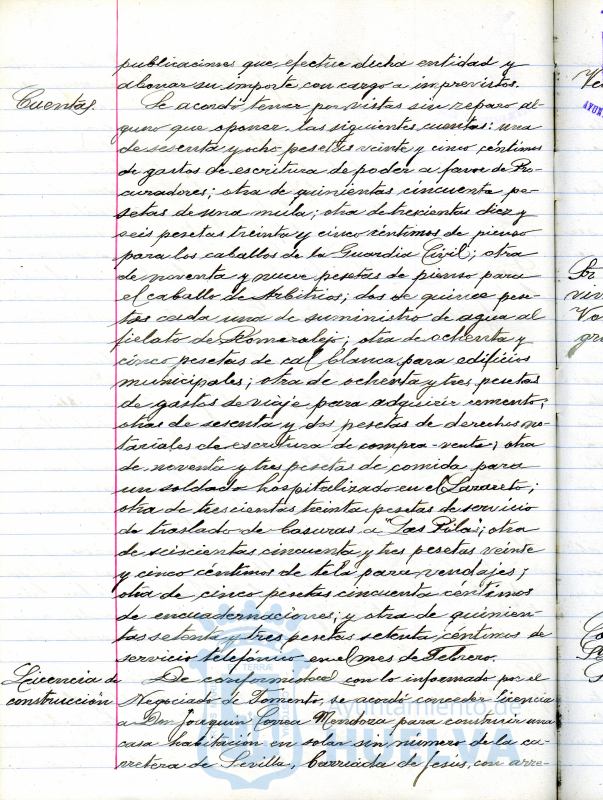 publicaciones que efectue dicha entidad y
abonar su importe con cargo a imprevistos.
Cuentas.
Se acordó tener por vistas sin reparo al-
guno que oponer, las siguientes cuentas: una
de sesenta y ocho pesetas veinte y cinco céntimos
de gastos de escritura de poder a favor de Pro-
curadores; otra de quinientas cincuenta pe-
setas de una mula; otra de trescientas diez y
seis pesetas treinta y cinco céntimos de pienso
para los caballos de la Guardia Civil; otra
de noventa y nueve pesetas de pienso para
el caballo de Arbitrios; dos de quince pese-
tas cada una de suministro de agua al
fielato de Romeralejo; otra de ochenta y
cinco pesetas de cal blanca para edificios
municipales; otra de ochenta y tres pesetas
de gastos de viaje para adquirir cemento;
otras de sesenta y dos pesetas de derechos no-
tariales de escritura de compra-venta; otra
de noventa y tres pesetas de comida para
un soldado hospitalizado en el Lazareto;
otra de trescientas treinta pesetas de servicio
de traslado de basuras a "Las Pilas"; otra
de seiscientas cincuenta y tres pesetas veinte
y cinco céntimos de tela para vendajes;
otra de cinco pesetas cincuenta céntimos
de encuadernaciones; y otra de quinien-
tas setenta y tres pesetas setenta céntimos de
servicio telefónico en el mes de Febrero.
Licencia de
construcción
De conformidad con lo informado por el
Negociado de Fomento, se acordó conceder licencia
a Don Joaquín Correa Mendoza para construir una
casa habitación en solar sin número de la ca-
rretera de Sevilla, barriada de Jesús, con arre-
Ayuntamiento de
HUELVA